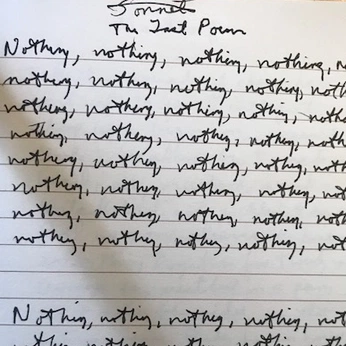 Sonnet
The Last Poem
Nothing, nothing, nothing, nothing, n
nothing, nothing, nothing, nothing, noth
nothing, nothing, nothing, nothing, noth
nothing, nothing, nothing, nothing, noth
nothing, nothing, nothing, nothing, noth
Nothing, nothing, nothing, nothing, not
nothing, nothing, nothing, nothing, not
nothing, nothing, nothing, nothing, not
Nothing, nothing, nothing, nothing, not
nothing, nothing, nothing, nothing